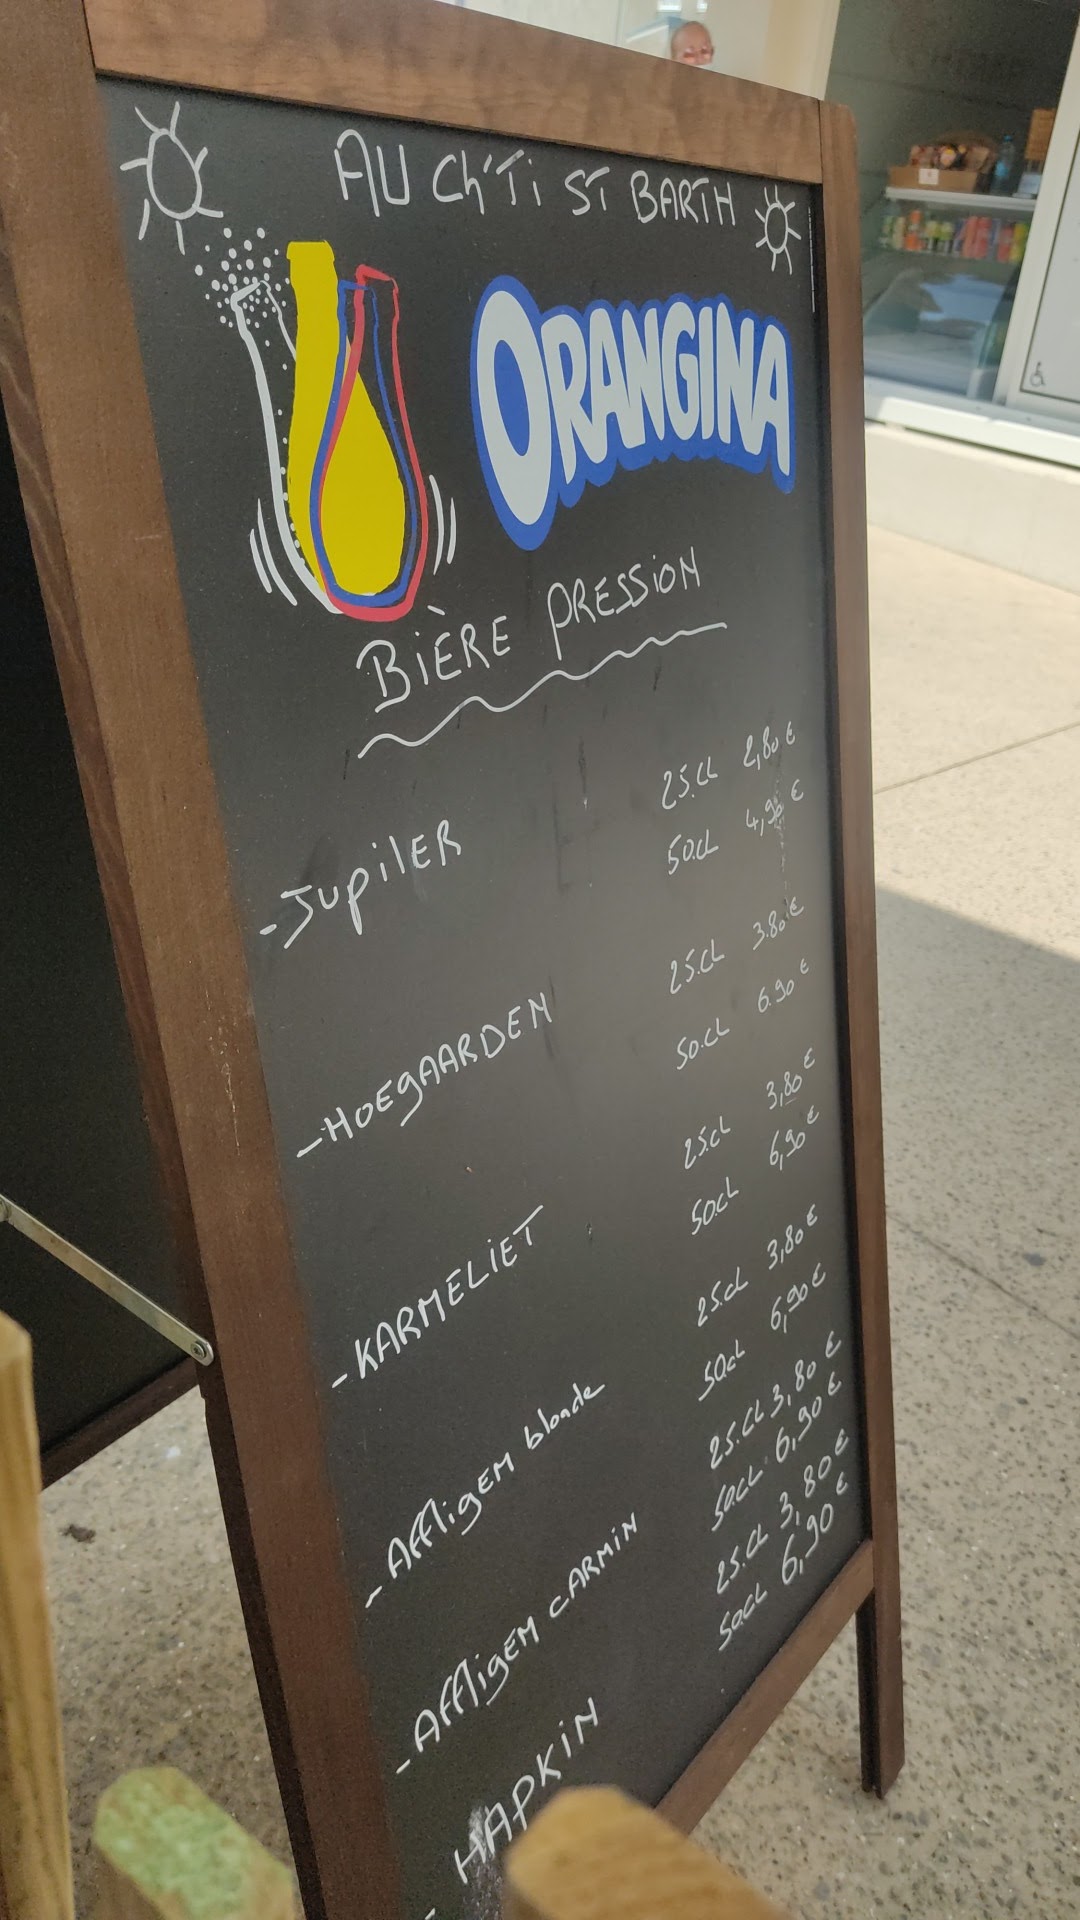 AU Ch'Ti ST BARTH
ORANGINA
BIÈRE PRESSION
- JUPILER 25.CL 2,80 €
50CL 4,90 €
- HOEGAARDEN 25.CL 3.80 €
50.CL 6.90 €
- KARMELIET 25.CL 3,80 €
50CL 6,90 €
- AFFLIGEM blonde 25.CL 3,80 €
50CL 6,90 €
- AFFLIGEM CARMIN 25.CL 3,80 €
50.CL 6,90 €
- HAPKIN 25.CL 3,80 €
50.CL 6,90 €